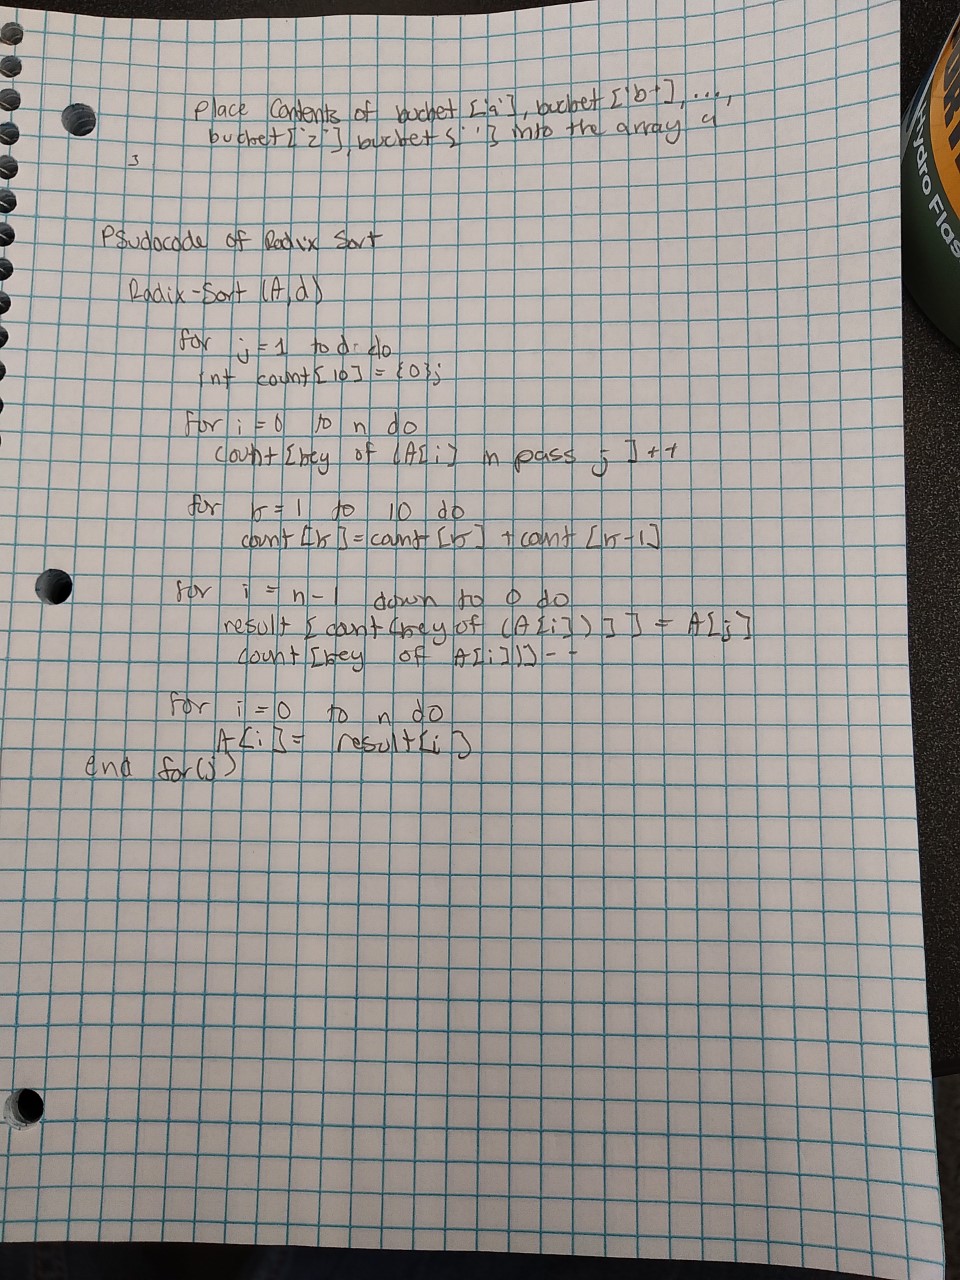 Place Contents of bucket ['a'], bucket ['b'], ...,
bucket ['z'], bucket [' '] into the array a
}
Psudocode of Radix Sort
Radix-Sort (A,d)
for j = 1 to d do
int count[10] = {0};
for i = 0 to n do
count [key of (A[i] in pass j ]++
for k = 1 to 10 do
count [k] = count [k] + count [k-1]
for i = n-1 down to 0 do
result [count [key of (A[i])]] = A[j]
count [key of A[i])]--
for i = 0 to n do
A[i] = result[i]
end for(j)
Hydro Flas